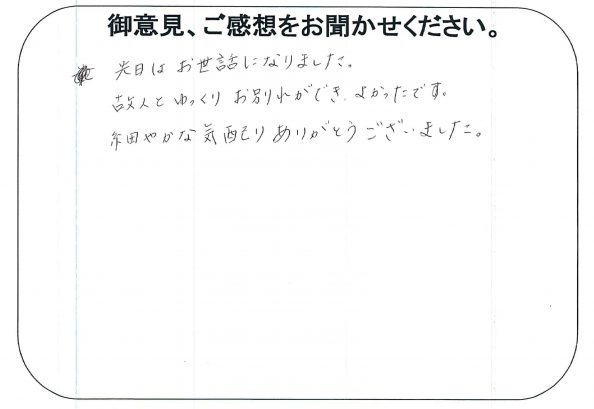 御意見、ご感想をお聞かせください。
先日はお世話になりました。
故人とゆっくりお別れができ、よかったです。
細やかな気配りありがとうございました。